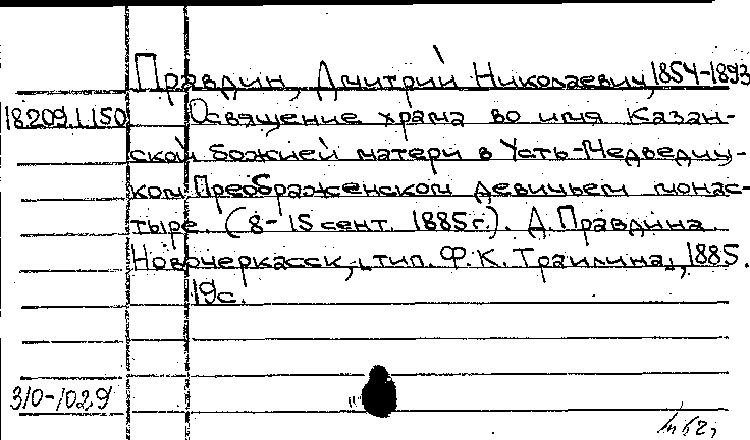 Правдин, Дмитрий Николаевич, 1854-1893
18.209.1.150 Освящение храма во имя Казан-
ской божией матери в Усть-Медведиц-
ком Преображенском девичьем монас-
тыре. (8-15 сент. 1885г.). Д. Правдина
Новочеркасск, тип. Ф.К. Траилина, 1885.
19с.
310-1029